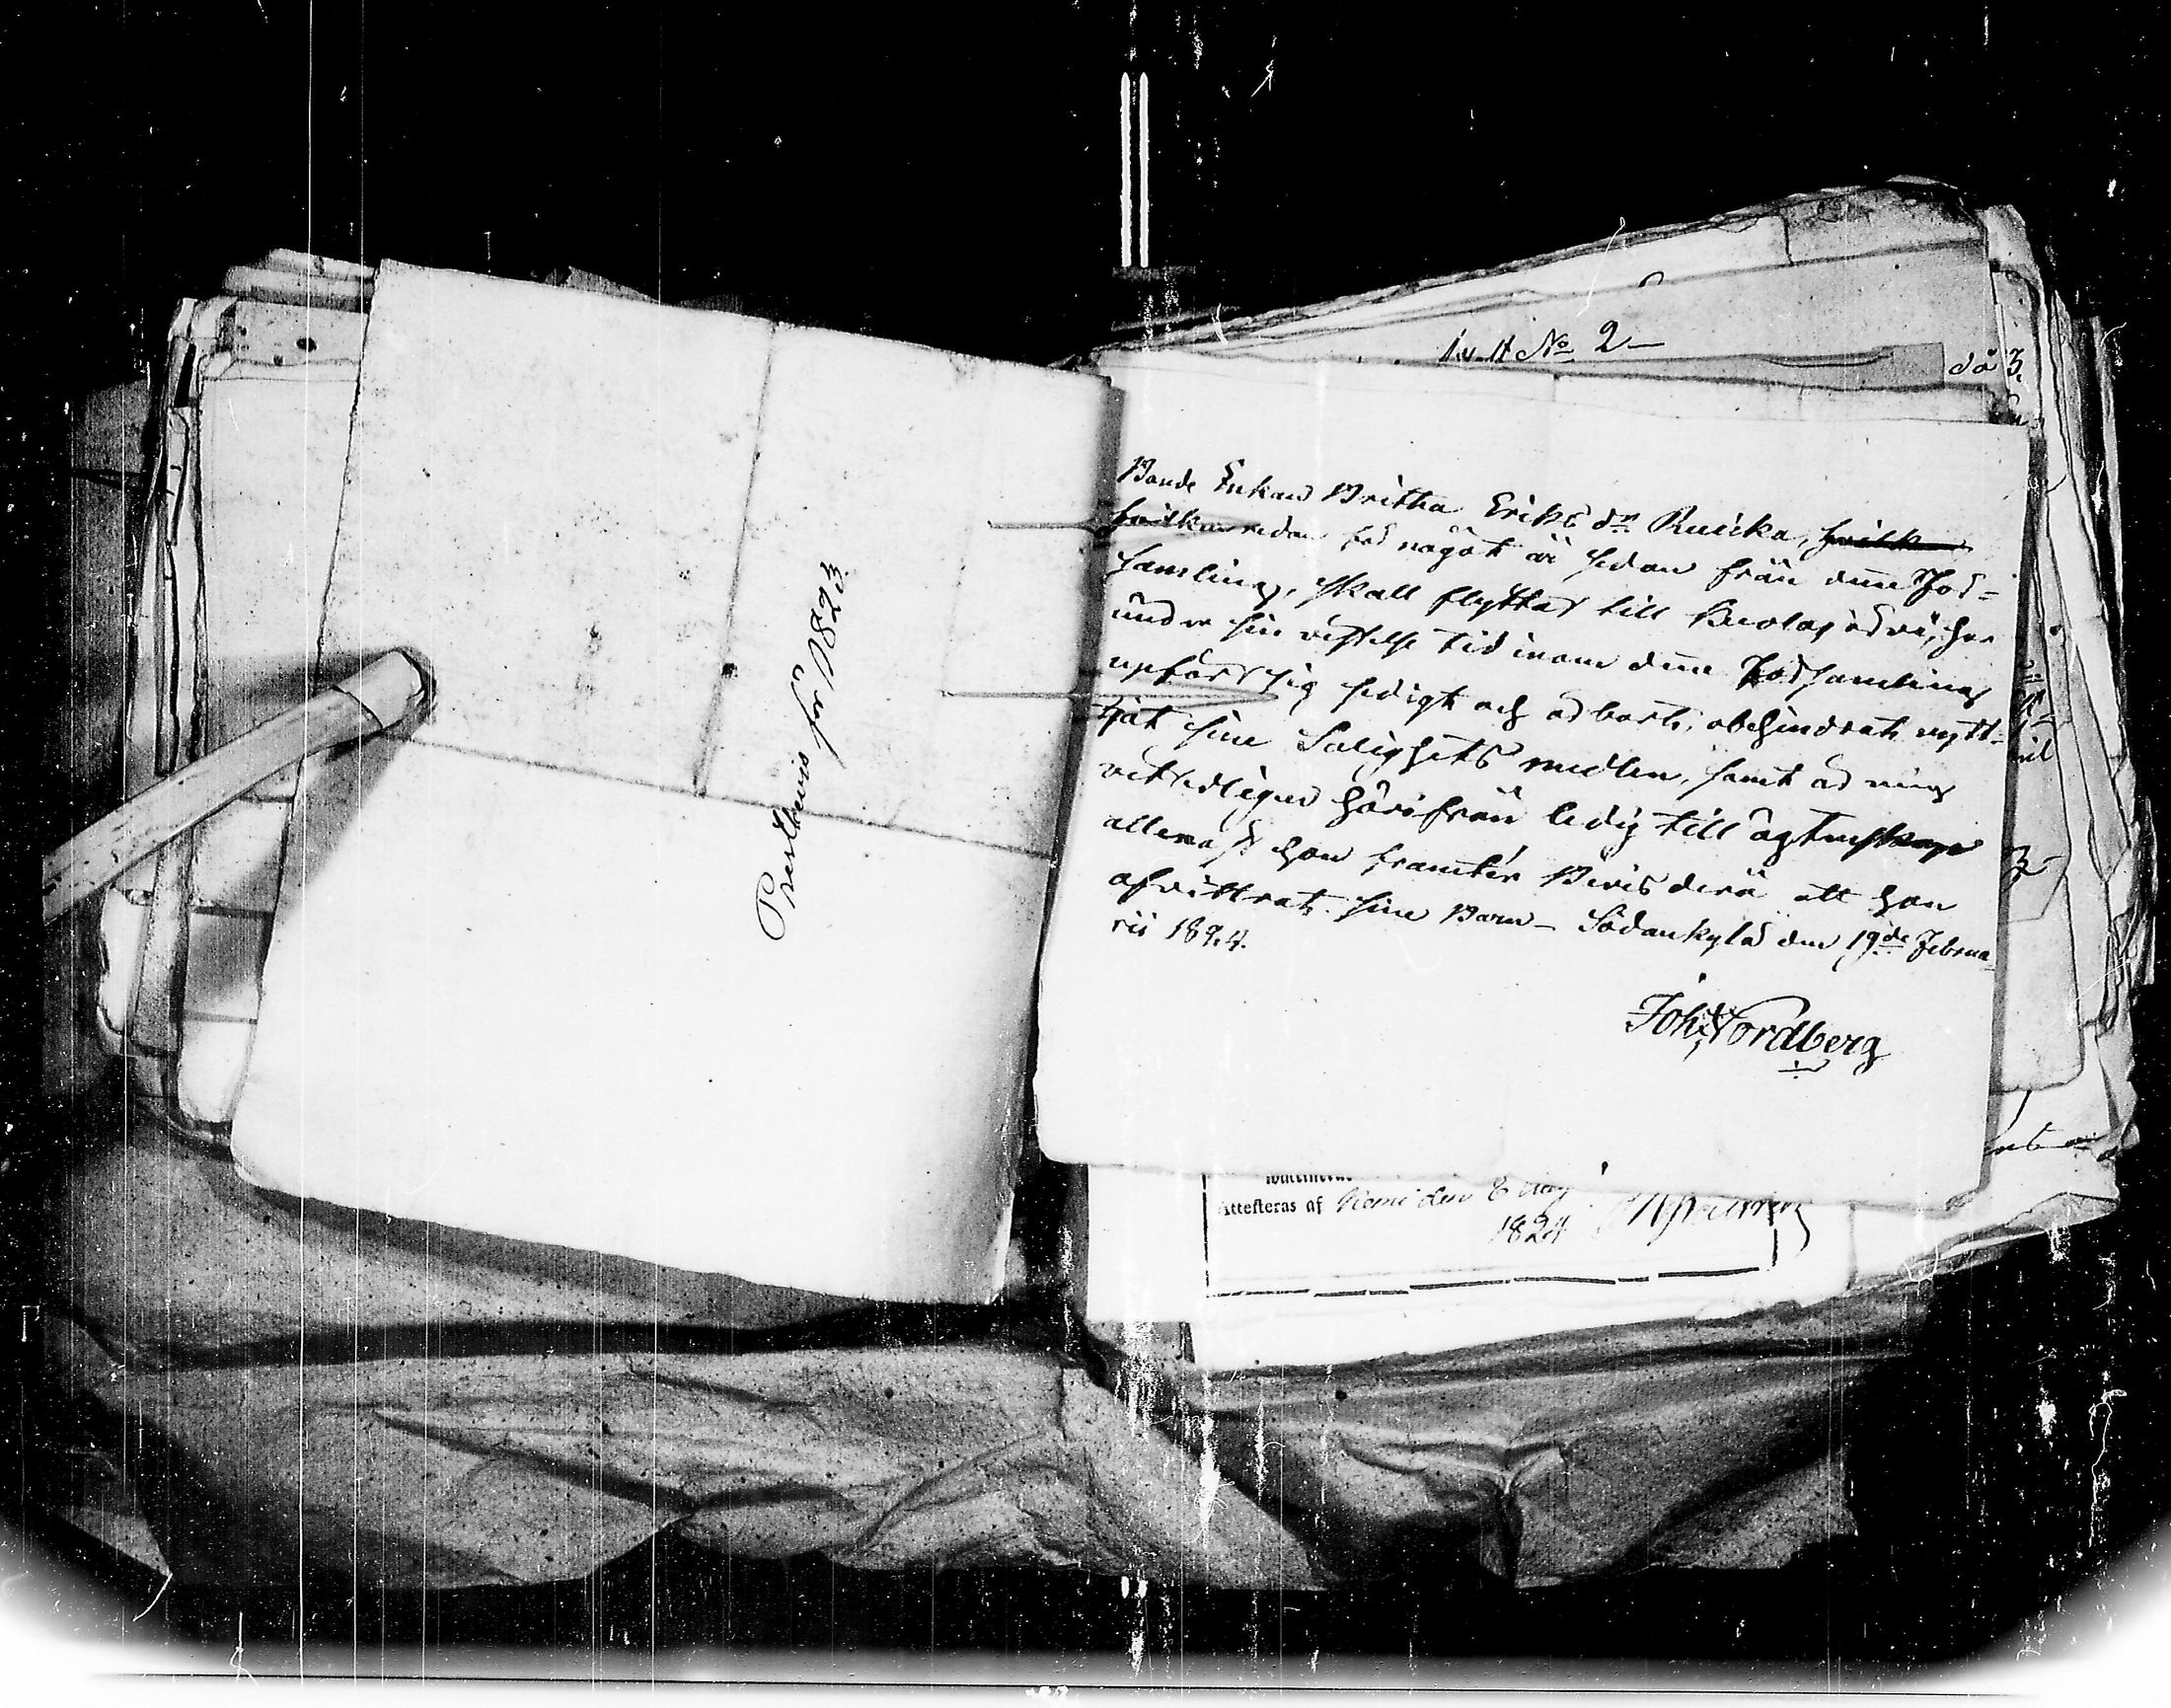 Prestbevis för 1823
No 2
då 3.
Bonde Enkan Britha Eriks dr. Ruicka, hvilk
hvilken redan för något år sedan från denne För=
samling, skall flyttas till Kuolajärvi, har
under sin vistelse tid inom denne Församling
upfört sig sedigt och ärbart, obehindrat nytt=
jat sine Salighets medlen, samt är mig
vetterligen härifrån ledig till ägtenskap
allenast hon framter Bevis derå att hon
afvittrat sine Barn – Sodankylä den 19de Februa-
rii 1824.
Joh. Nordberg
Attesteras af Kemi den 8 Maj
1824